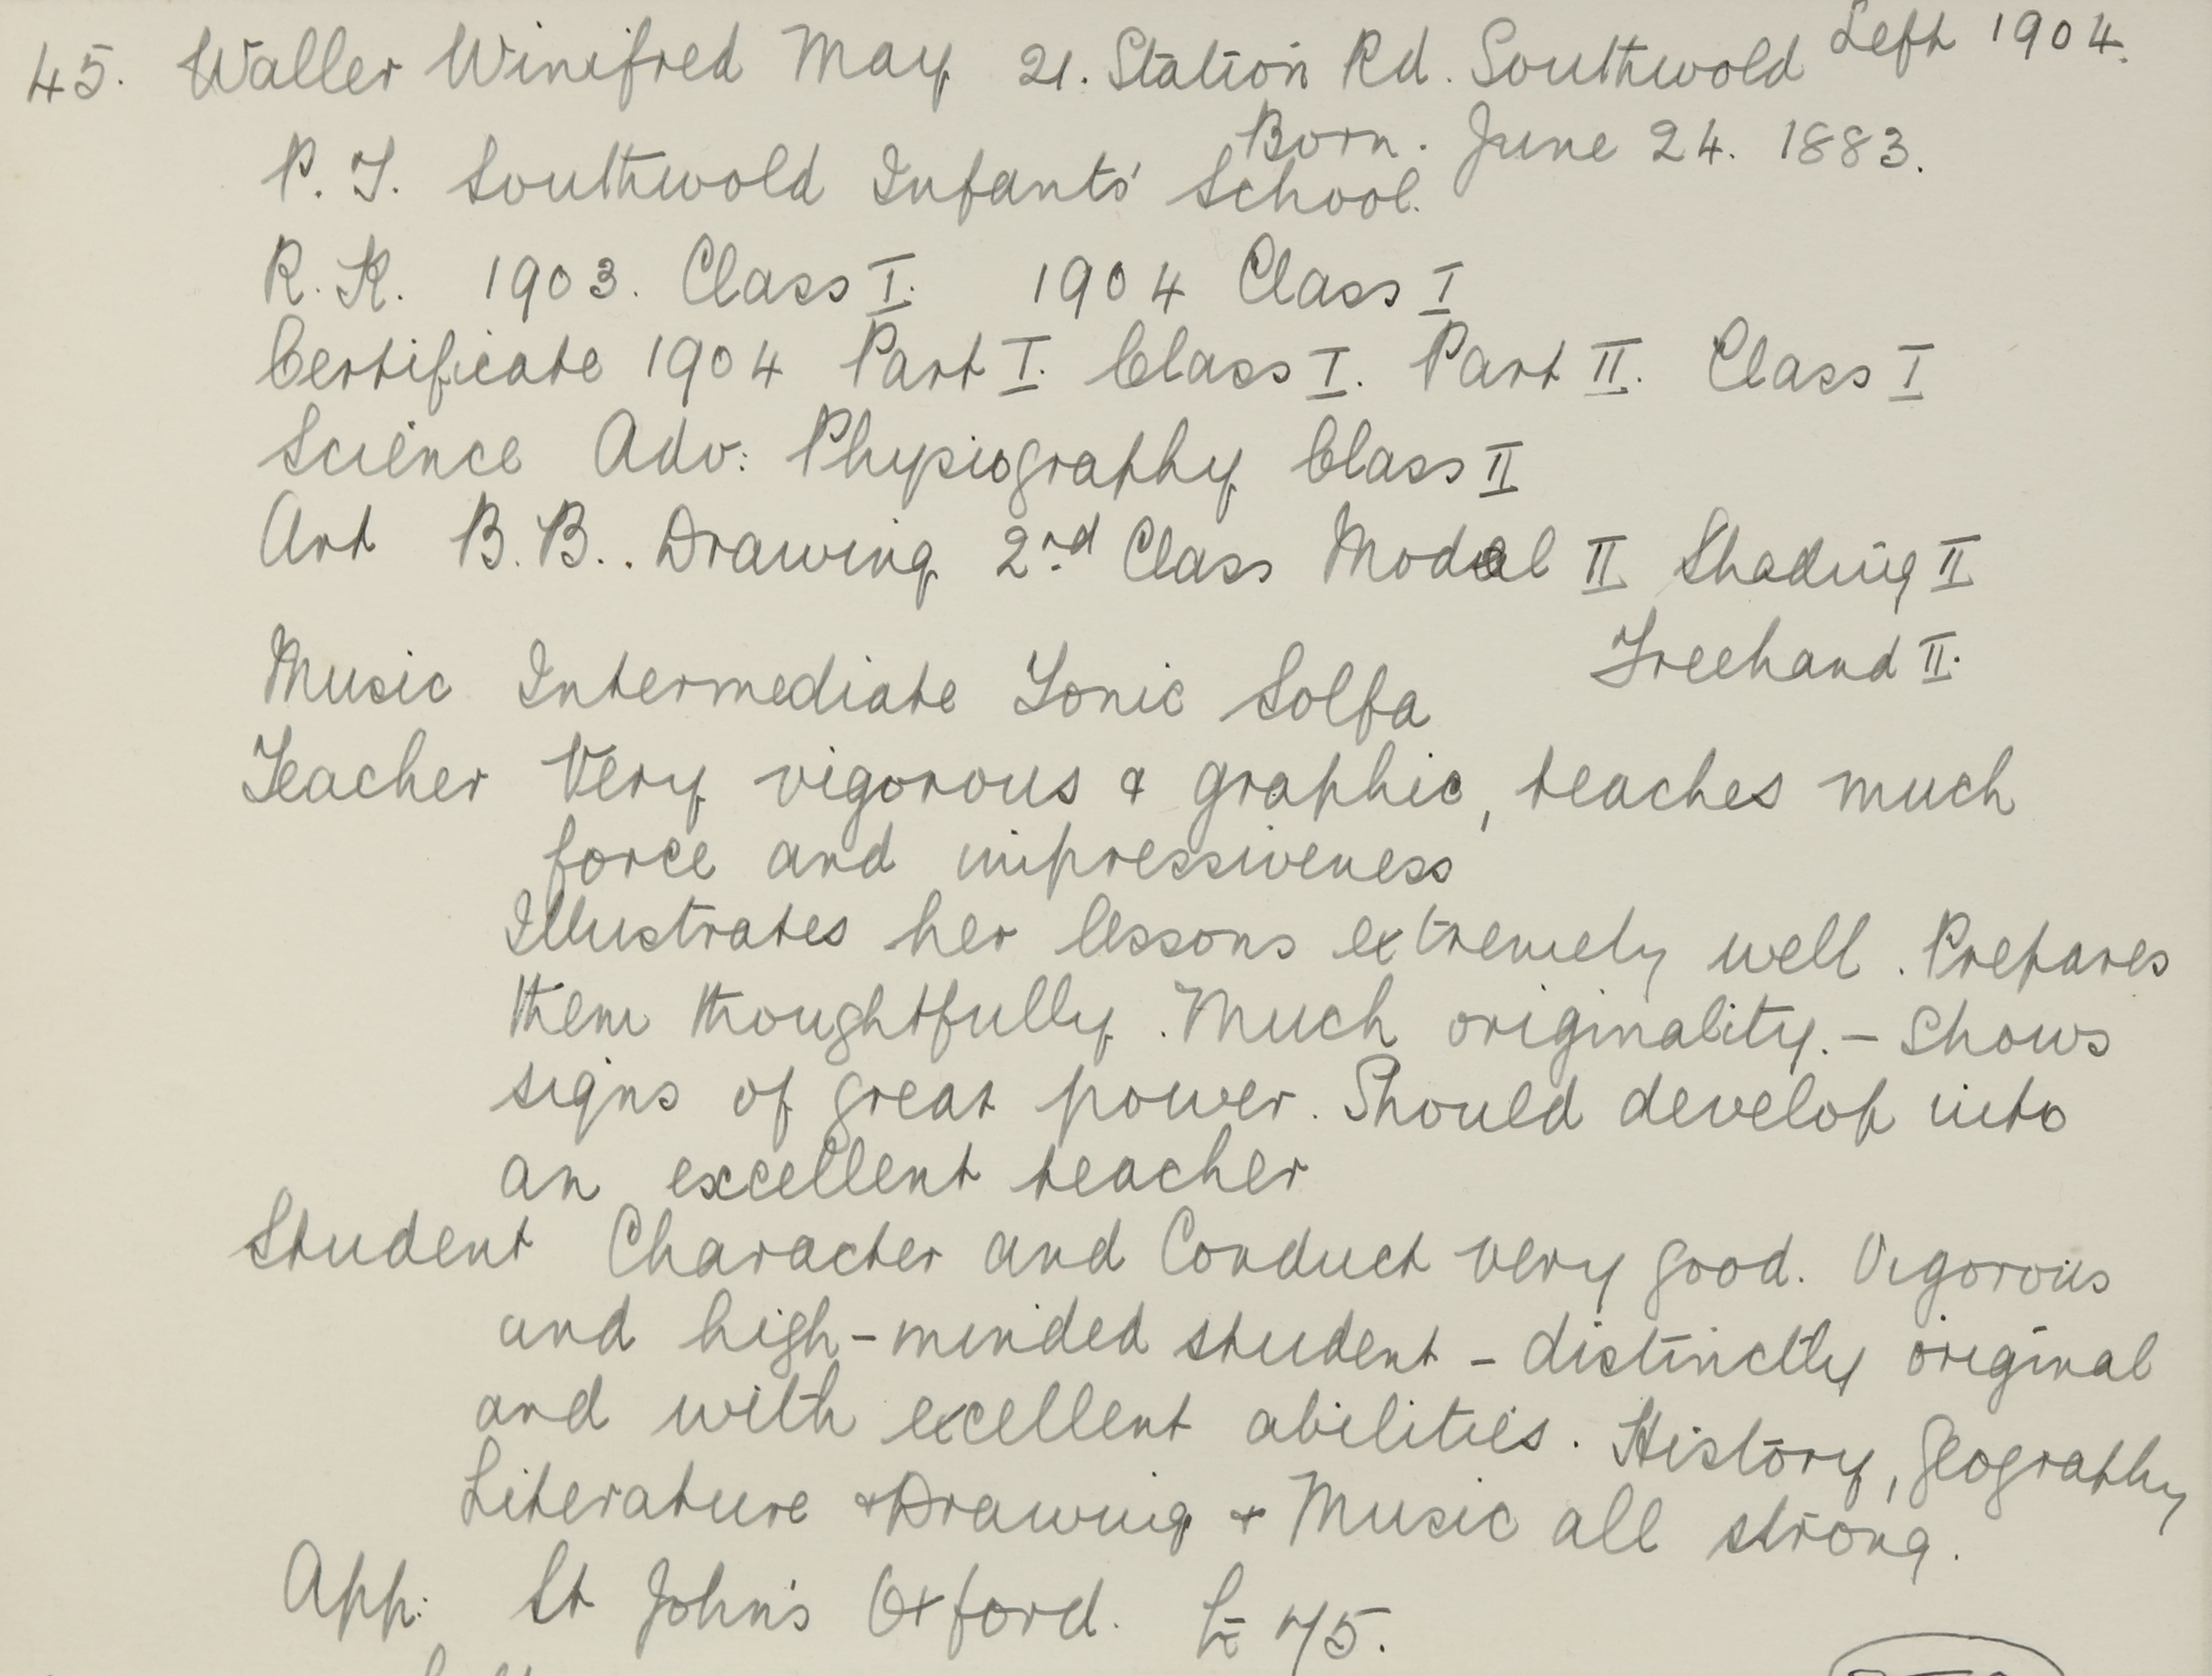 45. Waller Winifred May 21. Station Rd. Southwold Left 1904.
Born. June 24. 1883.
P.T. Southwold Infants' School.
R.K. 1903. Class I. 1904 Class I
Certificate 1904 Part I. Class I. Part II. Class I
Science Adv: Physiography Class II
Art B.B.. Drawing 2nd Class Model II Shading II
Freehand II.
Music Intermediate Tonic Solfa
Teacher Very vigorous & graphic, teaches much
force and impressiveness
Illustrates her lessons extremely well. Prepares
them thoughtfully. Much originality. - Shows
signs of great power. Should develop into
an excellent teacher
Student Character and Conduct very good. Vigorous
and high-minded student - distinctly original
and with excellent abilities. History, Geography
Literature & Drawing + Music all strong.
App: St John's Oxford. £75.